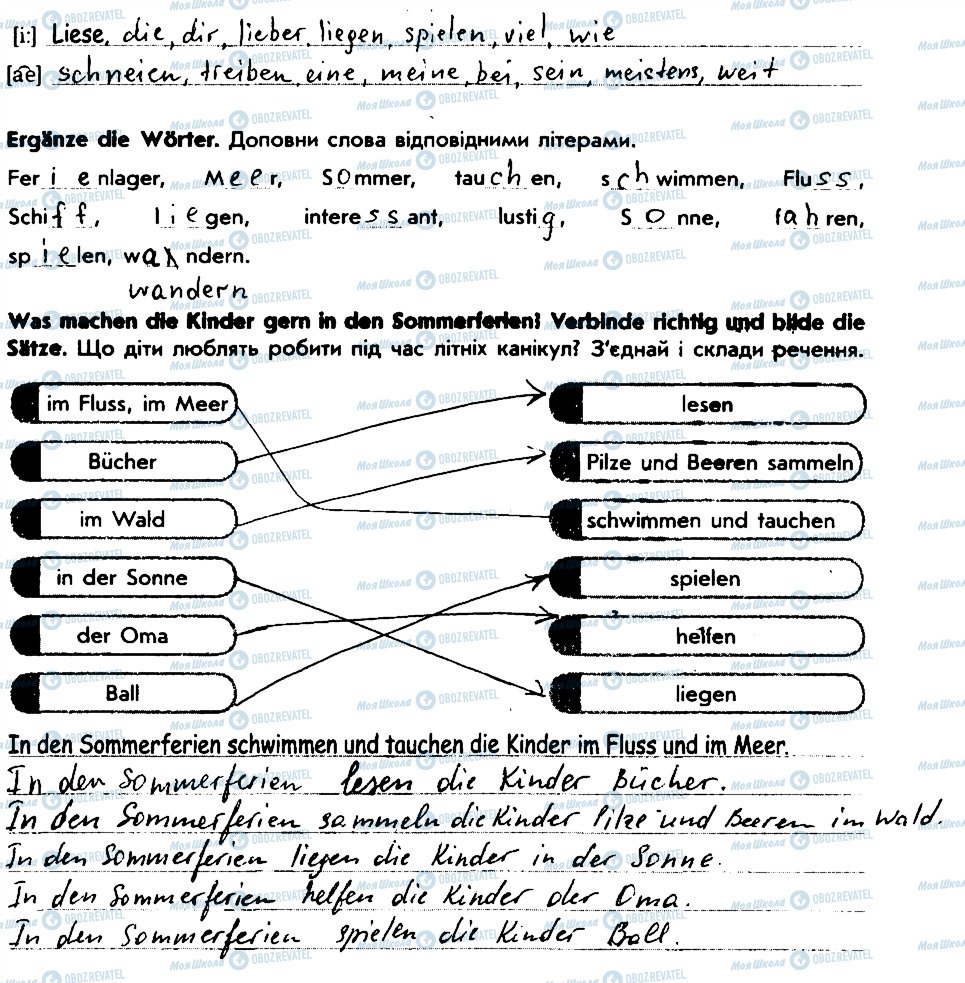 [i:] Liese, die, dir, lieber, liegen, spielen, viel, wie
[ae] schneien, treiben, eine, meine, bei, sein, meistens, weit
Ergänze die Wörter. Доповни слова відповідними літерами.
Ferienlager, Meer, Sommer, tauchen, schwimmen, Fluss,
Schiff, liegen, interessant, lustig, Sonne, fahren,
spielen, wandern.
wandern
Was machen die Kinder gern in den Sommerferien? Verbinde richtig und bilde die
Sätze. Що діти люблять робити під час літніх канікул? З'єднай і склади речення.
im Fluss, im Meer lesen
Bücher Pilze und Beeren sammeln
im Wald schwimmen und tauchen
in der Sonne spielen
der Oma helfen
Ball liegen
In den Sommerferien schwimmen und tauchen die Kinder im Fluss und im Meer.
In den Sommerferien lesen die Kinder Bücher.
In den Sommerferien sammeln die Kinder Pilze und Beeren im Wald.
In den Sommerferien liegen die Kinder in der Sonne.
In den Sommerferien helfen die Kinder der Oma.
In den Sommerferien spielen die Kinder Ball.
МояШкола OBOZREVATEL